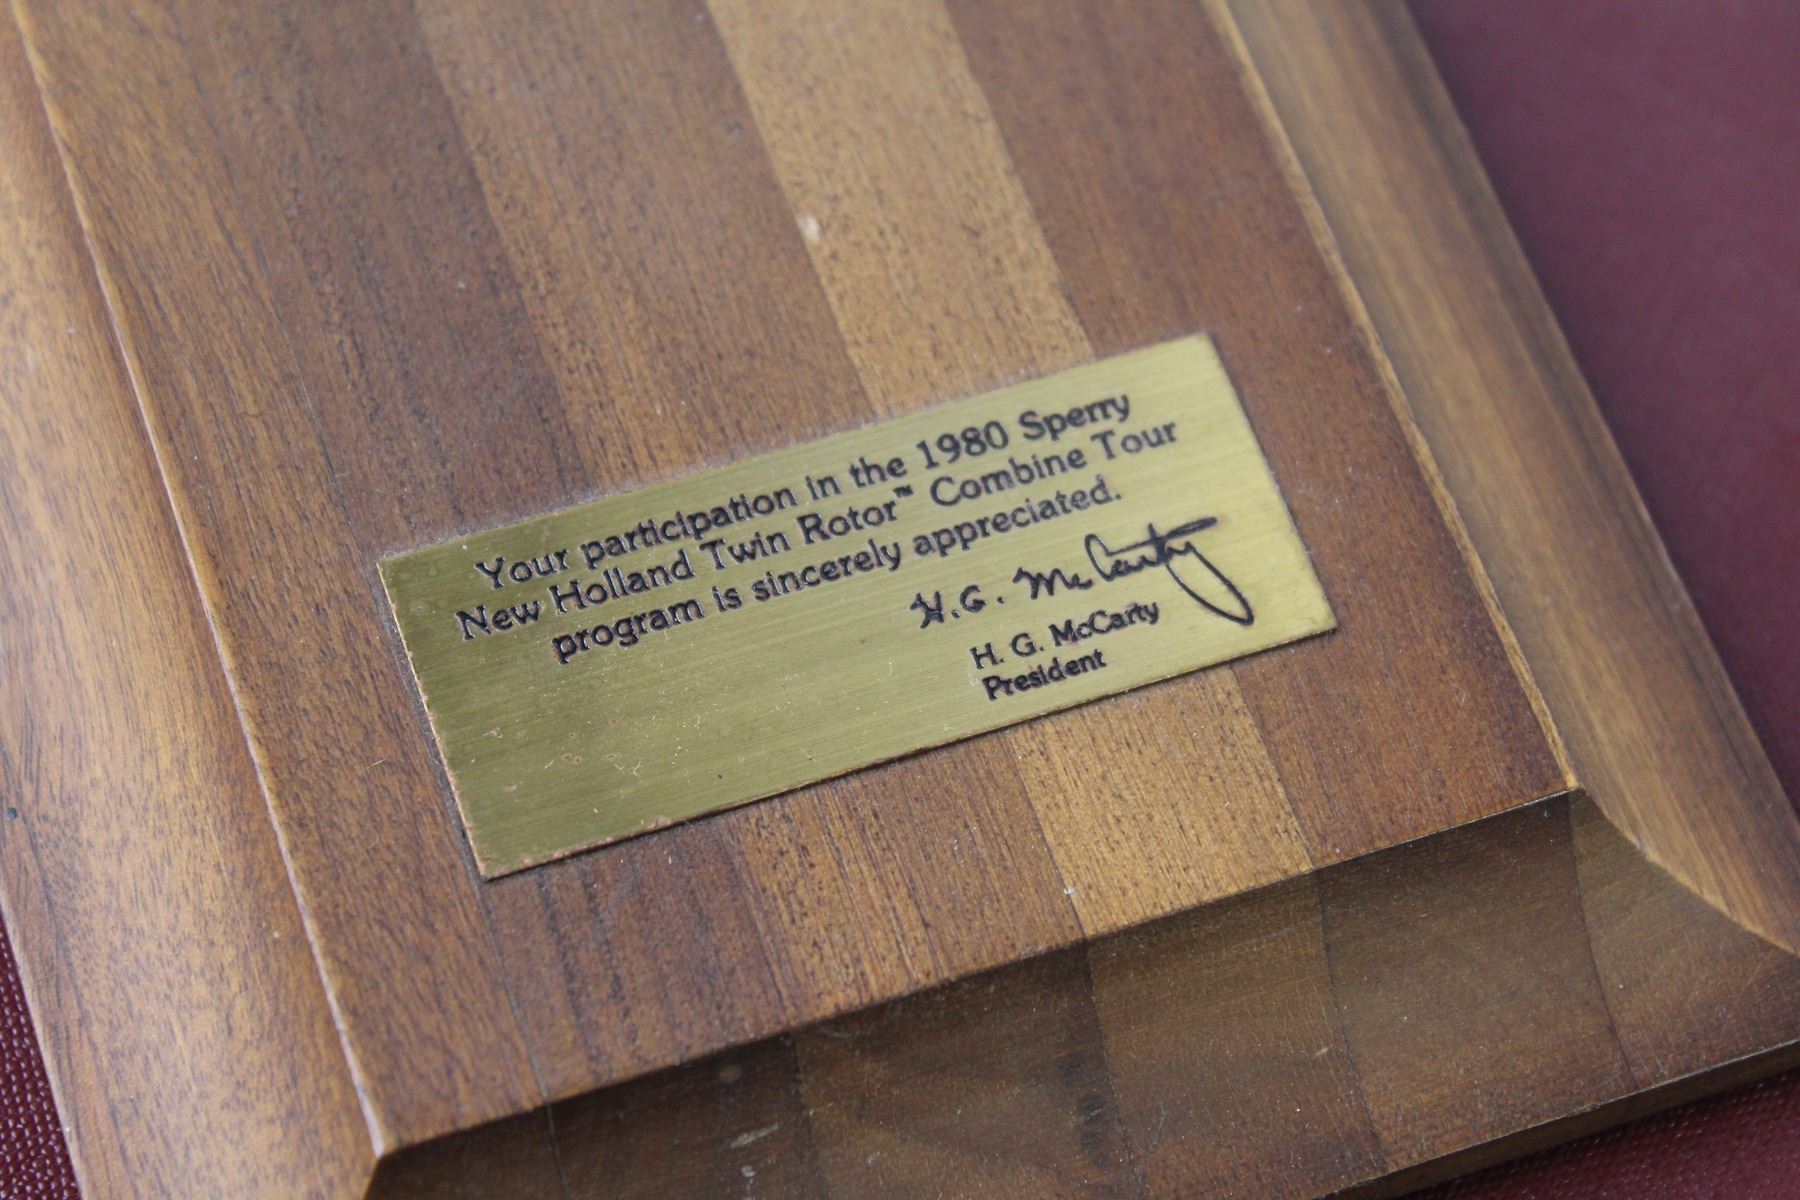 Your participation in the 1980 Sperry
New Holland Twin Rotor™ Combine Tour
program is sincerely appreciated.
H.G. McCarty
H. G. McCarty
President